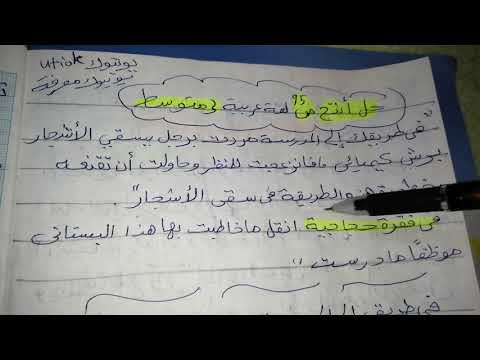 utiok يوتيوك
يوتيوك معرفة
حل أنتج ص لغة عربية متوسط
"في طريقك إلى المدرسة مررت برجل يسقي الأشجار
برش كيميائي للنظر وحاولت أن تقنعه
هذه الطريقة في سقي الأشجار".
في فقرة حجاجية انقل ما خاطبت بها هذا البستاني
موظفًا ما درست"
في طريق